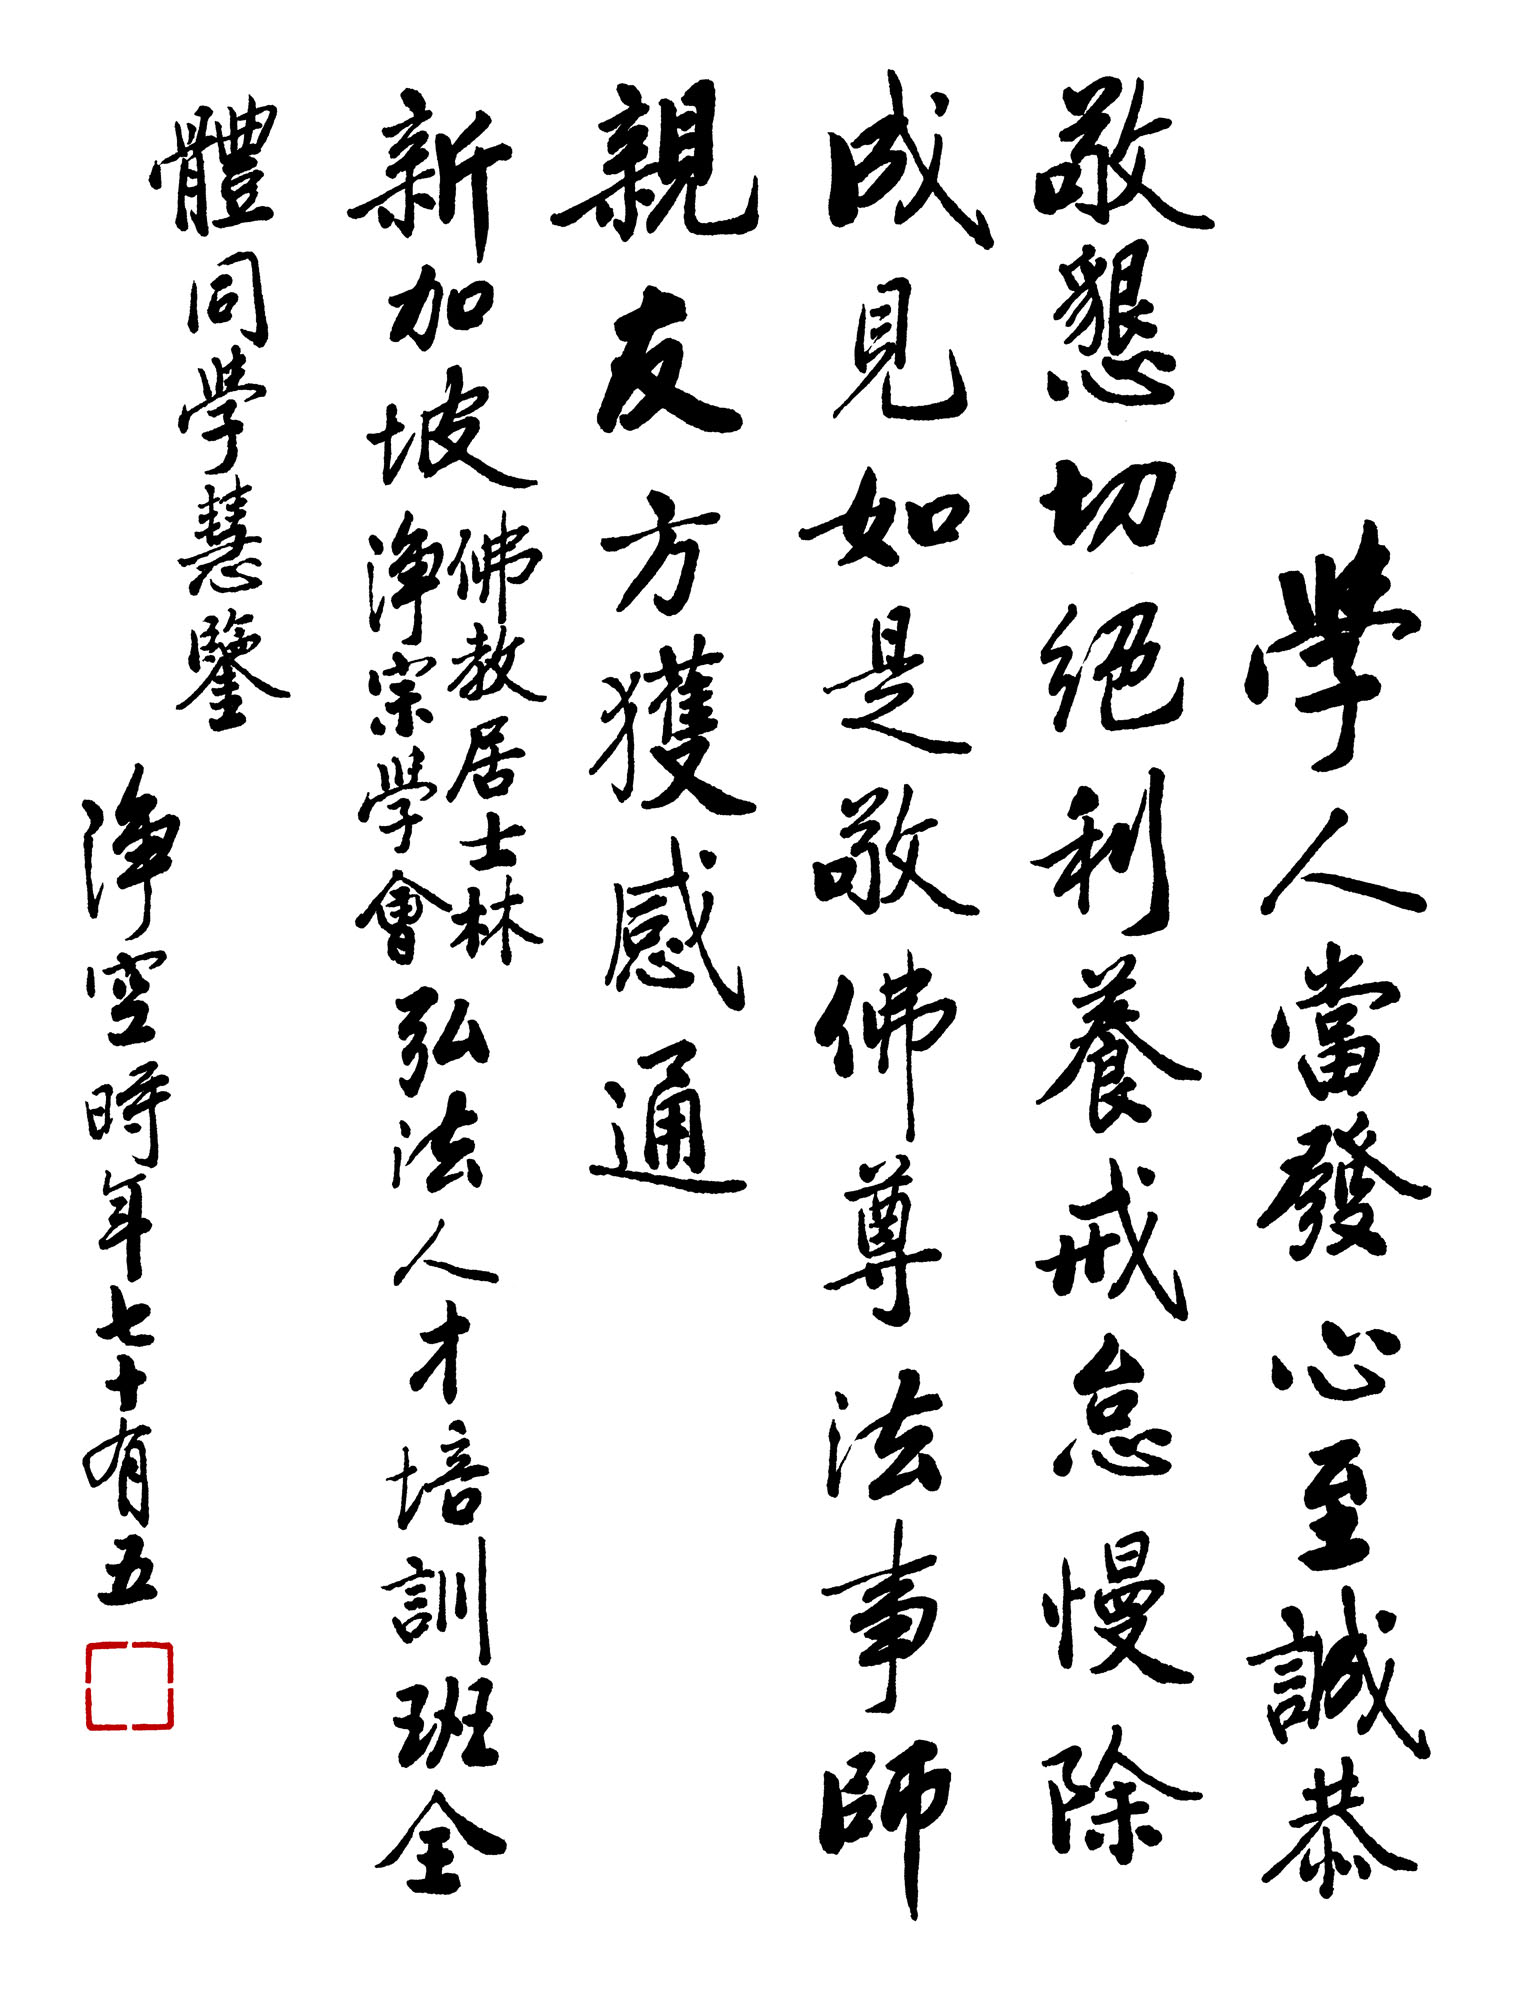 學人當發心至誠恭
敬懇切絕利養戒怠慢除
成見如是敬佛尊法事師
親友方獲感通
新加坡
佛教居士林
淨宗學會
弘法人才培訓班全
體同學慧鑒
淨空時年七十有五